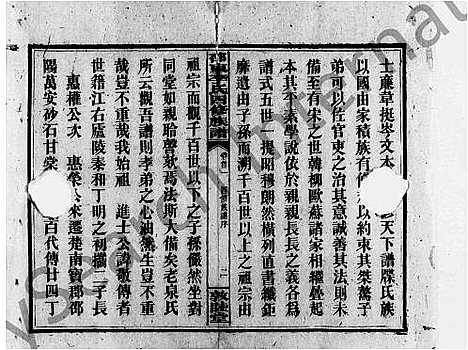 士廉草挺岑文本 天下譜牒氏族
以國由家積族有 以約束其桀驁子
弟可以任官東之治其意誠善其法則未
備至有宋之世韓柳歐蘇諸家相繼疊起
本其平素學說依於親親長長之義咎為
譜式五世一提昭穆朗然橫列直書纖鉅
靡遺由子孫而溯千百世以上之祖宗由
族譜
敦睦堂
祖宗而觀千百世以下之子孫儼然坐對
同堂如親聆謦欬焉法斯大備矣老泉氏
所云觀吾譜則孝弟之心油然生豈不重
哉豈不重哉我始祖 進士公諱敬傳者
世籍江右廬陵泰和丁明之初攜二子長
惠權公次 惠榮 來遷楚南寶郡邵
陽萬安砂石甘棠 百代傳廿四丁